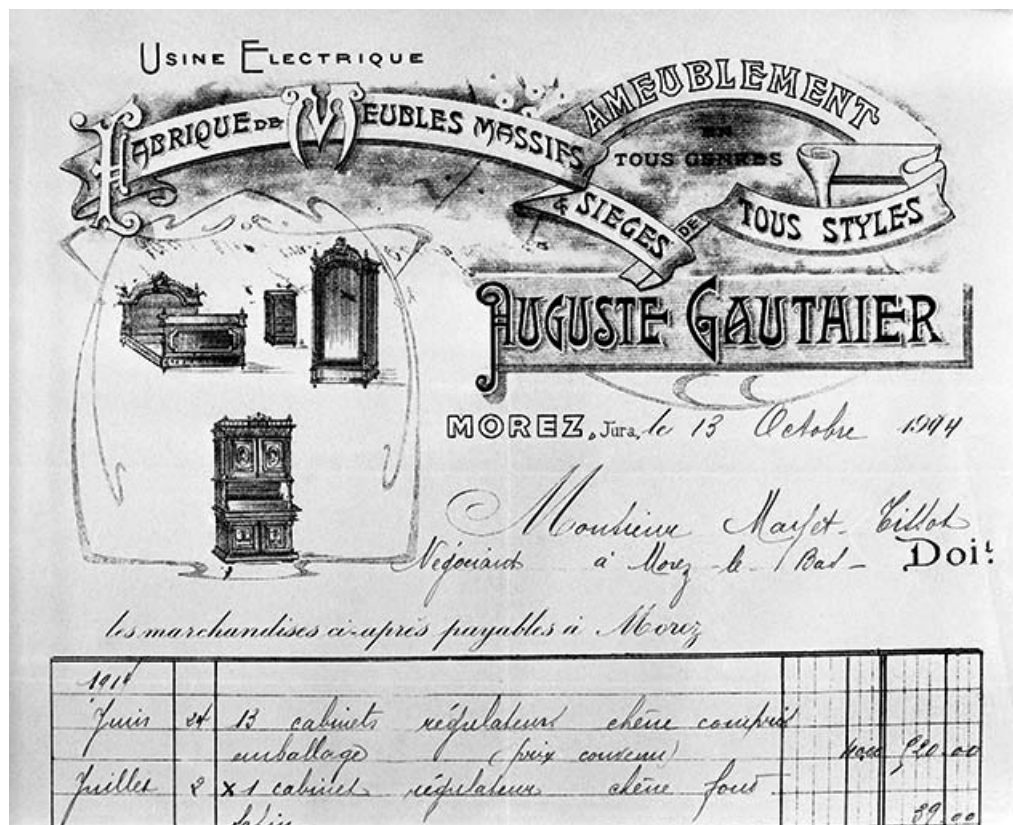 USINE ELECTRIQUE
FABRIQUE DE MEUBLES MASSIFS
AMEUBLEMENT
EN
TOUS GENRES
& SIEGES DE TOUS STYLES
AUGUSTE GAUTHIER
MOREZ, Jura, le 13 Octobre 1914
Monsieur Tissot
Négociant à Morez-le-Bas Doit
les marchandises ci-après payables à Morez
1914
Juin 24 13 cabinets régulateurs chêne compris
emballage (prix convenu) 40.00 520.00
Juillet 2 x 1 cabinet régulateur chêne
39.00